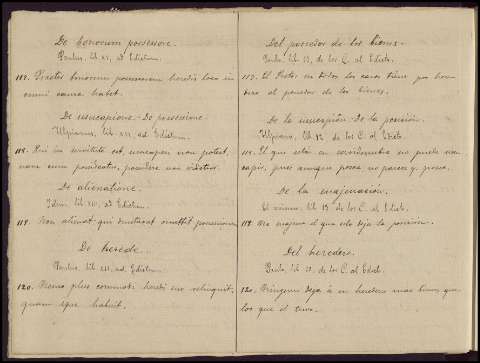 De bonorum possessore.
Paulus, lib. XX, ad Edictum.
117. Praetor bonorum possessorem heredis loco in
omni causa habet.
De usucapione. De possessione.
Ulpianus, lib. XXI, ad Edictum.
118. Qui in servitute est, usucapere non potest,
nam cum possideatur, possidere non videtur.
De alienatione.
Idem, lib. XXI, ad Edictum.
119. Non alienat qui dumtaxat omittit possessionem.
De herede.
Paulus, lib. XXI, ad Edictum.
120. Nemo plus commodi heredi suo relinquit,
quam ipse habuit.
Del poseedor de los bienes.
Paulo, lib. de los C. al Edicto.
117. El Pretor en todos los casos tiene por here
dero al poseedor de los bienes.
De la usucapión. De la posesión.
Ulpiano, lib. de los C. al Edicto.
118. El que está en servidumbre no puede usu
capir, pues aunque posea no parece q. posea.
De la enajenación.
El mismo, lib. de los C. al Edicto.
119. No enajena el que solo deja la posesión.
Del heredero.
Paulo, lib. de los C. al Edicto.
120. Ninguno deja á su heredero mas bienes que
los que él tuvo.